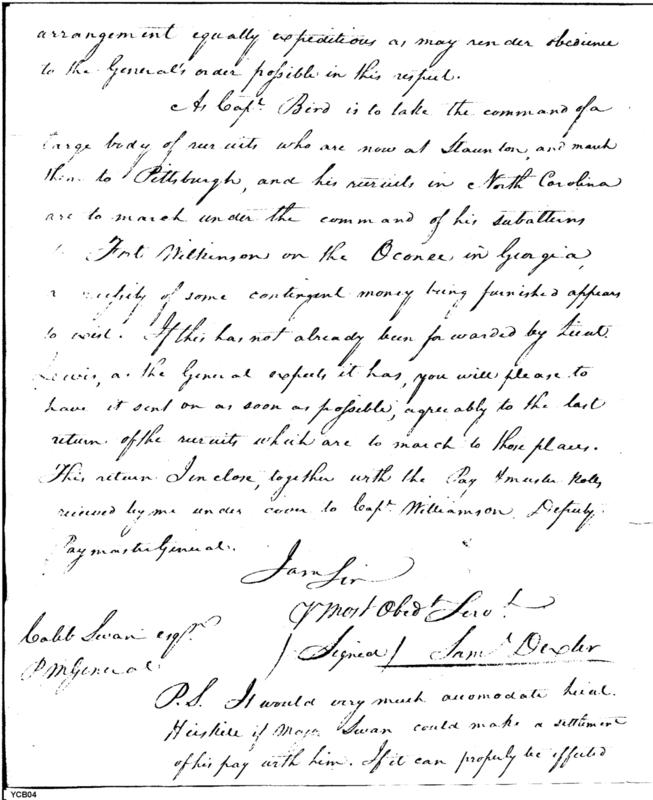 arrangement equally expeditious as may render obedience
to the General's order possible in this respect.
As Capt. Bird is to take the command of a
large body of recruits who are now at Staunton, and march
them to Pittsburgh, and his recruits in North Carolina
are to march under the command of his subalterns
to Fort Wilkinson on the Oconee in Georgia,
a necessity of some contingent money being furnished appears
to exist. If this has not already been forwarded by Lieut.
Lewis, as the General expects it has, you will please to
have it sent on as soon as possible, agreeably to the last
return of the recruits which are to march to those places.
This return I inclose, together with the Pay & muster Rolls
received by me under cover to Capt. Williamson Deputy
Paymaster General.
I am Sir
Yr Most Obedt. Servt.
Caleb Swan esqr.
(Signed) Saml. Dexter
P M General
P.S. It would very much acomodate Lieut.
if Majr. Swan could make a settlement
of his pay with him. If it can properly be effected
YCB04